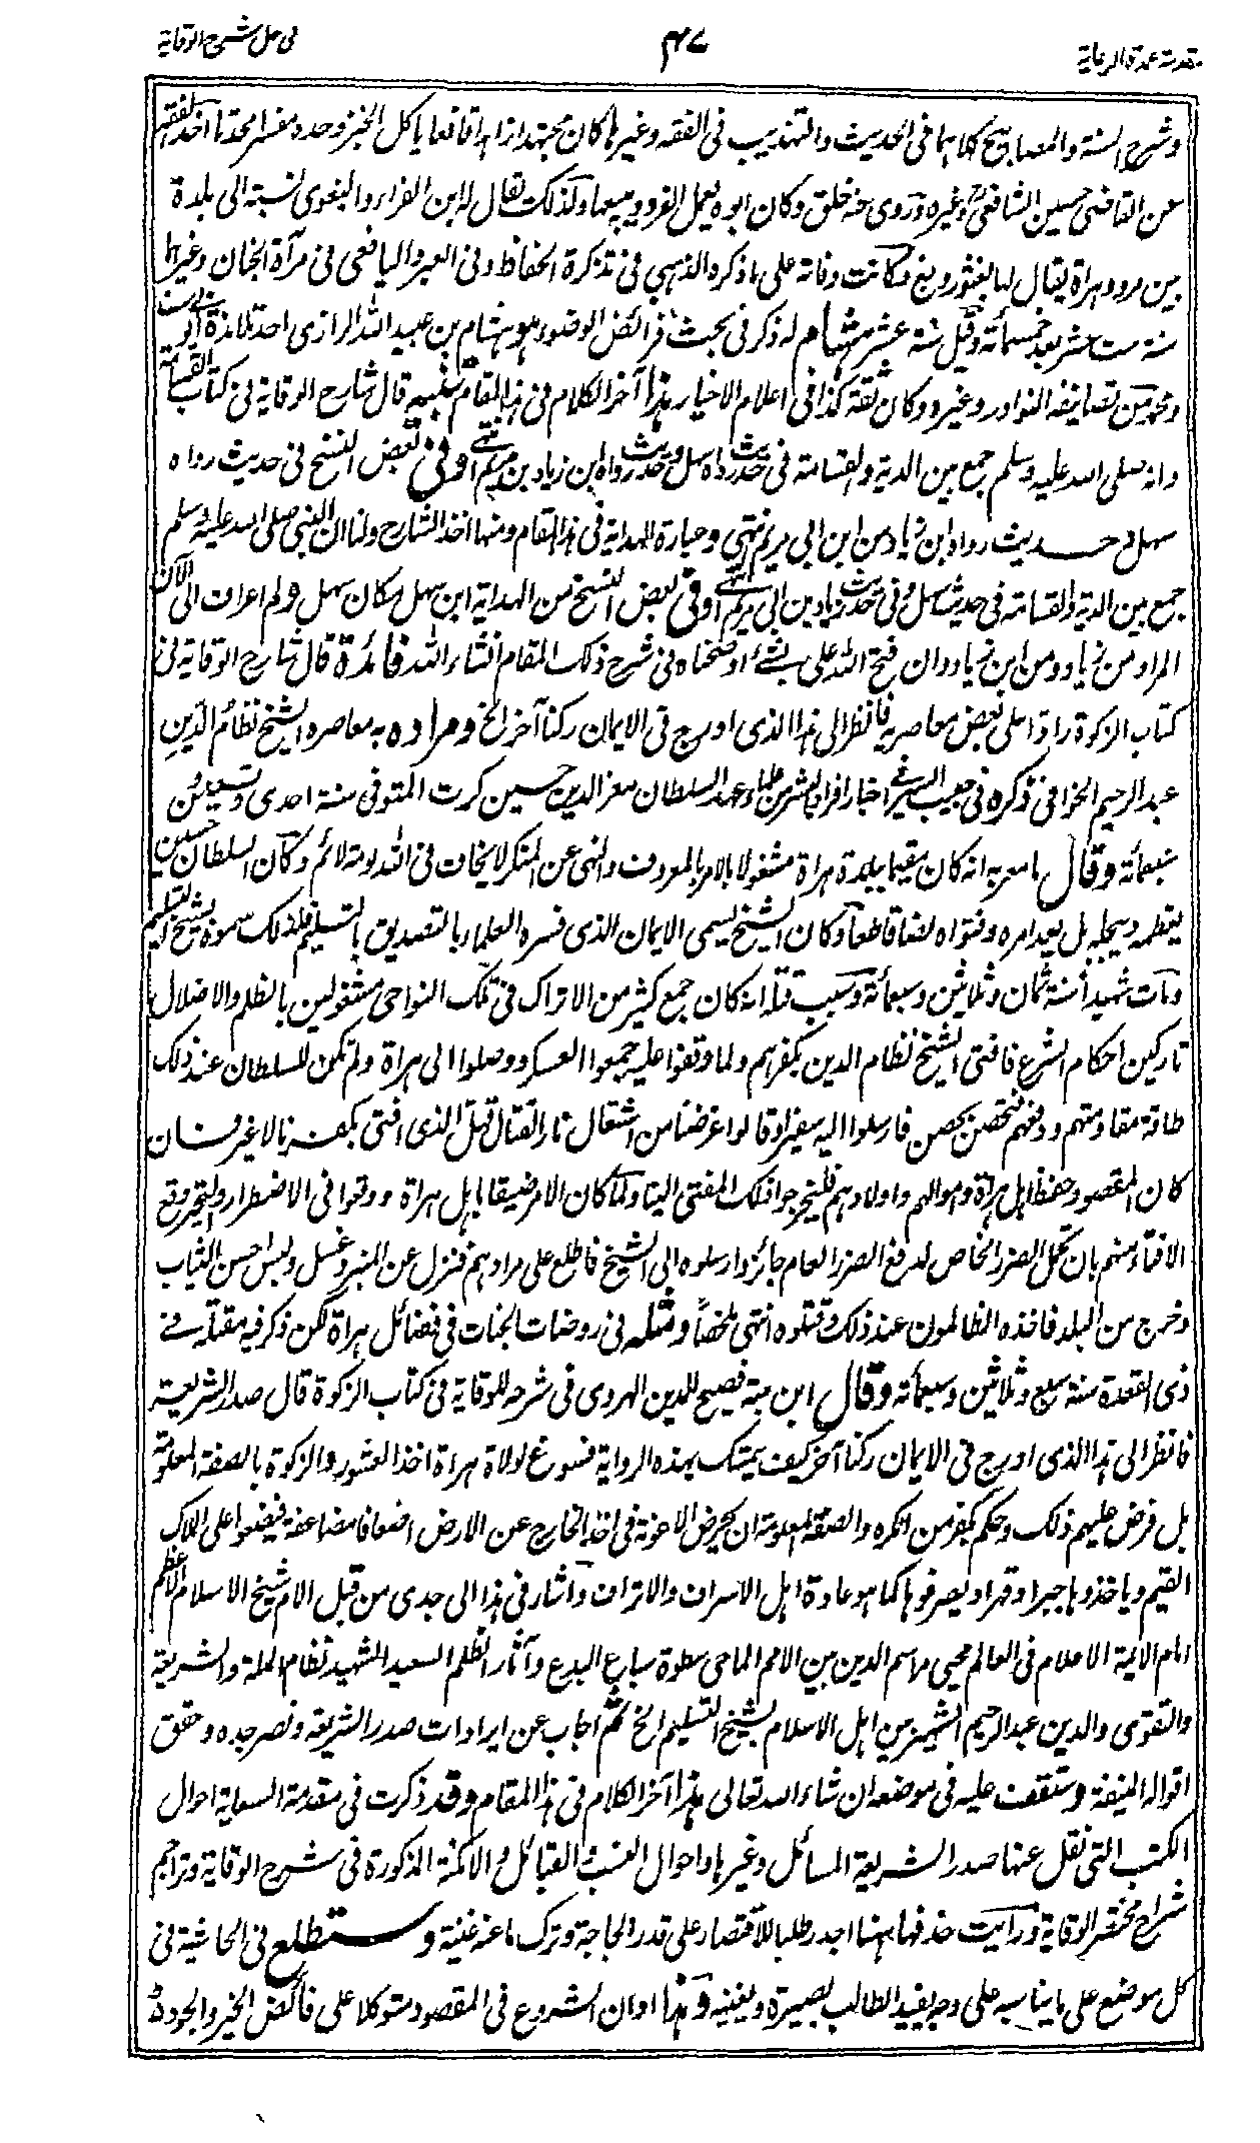 مقدمة عمدة الرعاية
۴۷
فى حل شرح الوقاية
وشرح السنة والمصابيح كلاهما فى الحديث والتهذيب فى الفقه وغيرها كان مجتهدا زاهدا قانعا ياكل الخبز وحده مفسرا محدثا اخذ الفقه
عن القاضى حسين الشافعى وغيره وروى عنه خلق وكان ابوه يعمل الفرو ويبيعها ولذلك يقال له ابن الفراء والبغوى نسبة الى بلدة
بين مرو وهراة يقال لها بغشور وبغ وكانت وفاته على ما ذكره الذهبى فى تذكرة الحفاظ وفى العبر واليافعى فى مرآة الجنان وغيرها
سنة ست عشر بعد خمسمأة وقيل سنة عشر هشام له ذكر فى بحث فرائض الوضوء هو هشام بن عبيد الله الرازى احد تلامذة ابى يوسف
ومحمد من تصانيفه النوادر وغيره وكان ثقة كذا فى اعلام الاخيار هذا آخر الكلام فى هذا المقام تنبيه قال شارح الوقاية فى كتاب القسامة
وانه صلى الله عليه وسلم جمع بين الدية والقسامة فى حديث رواه سهل وحديث رواه ابن زياد بن مريم انتهى وفى بعض النسخ فى حديث رواه
سهل وحديث رواه ابن زياد من ابن ابى مريم انتهى وعبارة الهداية فى هذا المقام ومنها اخذ الشارح ولنا ان النبى صلى الله عليه وسلم
جمع بين الدية والقسامة فى حديث سهل وفى حديث زياد بن ابى مريم انتهى وفى بعض النسخ من الهداية ابن سهل مكان سهل ولم اعرف الى الآن
المراد من زياد ومن ابن زياد وان فتح الله على بشئ اوضحناه فى شرح ذلك المقام انشاء الله فائدة قال شارح الوقاية فى
كتاب الزكوة رادا على بعض معاصريه فانظر الى هذا الذى ادرج فى الايمان ركنا آخر الخ ومراده به معاصره الشيخ نظام الدين
عبد الرحيم الخوافى ذكره فى حبيب السير فى اخبار افراد البشر من علماء عهد السلطان معز الدين حسين كرت المتوفى سنة احدى وسبعين
سبعمأة وقال ما معربه انه كان مقيما ببلدة هراة مشغولا بالامر بالمعروف والنهى عن المنكر لا يخاف فى الله لومة لائم وكان السلطان حسين
يعظمه ويبجله بل يعد امره وفتواه نصا قاطعا وكان الشيخ يسمى الايمان الذى فسره العلماء بالتصديق بالتسليم فلذلك سموه بشيخ التسليم
ومات شهيدا سنة ثمان وثلاثين وسبعمأة وسبب قتله انه كان جمع كثير من الاتراك فى تلك النواحى مشغولين بالظلم والاضلال
تاركين احكام الشرع فافتى الشيخ نظام الدين بكفرهم ولما وقفوا عليه جمعوا العسكر ووصلوا الى هراة ولم تكن للسلطان عند ذلك
طاقة مقاومتهم ودفعهم فتحصن بحصن فارسلوا اليه سفيرا وقالوا غرضنا من اشتعال نار القتال قتل الذى افتى بكفرنا لا غير فان
كان المقصود حفظ اهل هراة واموالهم واولادهم فليخرجوا ذلك المفتى الينا ولما كان الامر ضيقا باهل هراة ووقعوا فى الاضطرار والتحير وقع
الافتاء منهم بان تحمل الضرر الخاص لدفع الضرر العام جائز وارسلوه الى الشيخ فاطلع على مرادهم فنزل عن المنبر وغسل ولبس احسن الثياب
وخرج من البلد فاخذه الظالمون عند ذلك وقتلوه انتهى ملخصا ومثله فى روضات الجنات فى فضائل هراة لكن ذكر فيه مقتله فى
ذى القعدة سنة سبع وثلاثين وسبعمأة وقال ابن بنته فصيح الدين الهروى فى شرحه للوقاية فى كتاب الزكوة قال صدر الشريعة
فانظر الى هذا الذى ادرج فى الايمان ركنا آخر كيف يتمسك بهذه الرواية فسوغ لولاة هراة اخذ العشور والزكوة بالصفة المعلومة
بل فرض عليهم ذلك وحكم بكفر من انكره والصفة المعلومة ان يحرض الاعونة فى اخذ الخارج عن الارض اضعافا مضاعفة فيضعوا على الملاك
القيم وياخذوها جبرا وقهرا ويصرفوها كما هو عادة اهل الاسراف والاتراف واشار فى هذا الى جدى من قبل الام شيخ الاسلام الاعظم
امام الائمة الاعلام فى العالم محيى مراسم الدين بين الامم الماحى سطوة سباع البدع وآثار الظلم السعيد الشهيد نظام الملة والشريعة
والتقوى والدين عبد الرحيم الشهير بين اهل الاسلام بشيخ التسليم الخ ثم اجاب عن ايرادات صدر الشريعة ونصر جده وحقق
اقواله المنيفة وستقف عليه فى موضعه ان شاء الله تعالى هذا آخر الكلام فى هذا المقام وقد ذكرت فى مقدمة السعاية احوال
الكتب التى نقل عنها صدر الشريعة المسائل وغيرها واحوال النسب والقبائل والامكنة المذكورة فى شرح الوقاية وتراجم
شراح مختصر الوقاية ورأيت حذفها ههنا اجدر طلبا للاقتصار على قدر الحاجة وترك ما عنه غنية وستطلع فى الحاشية فى
كل موضع على ما يناسبه على وجه يفيد الطالب بصيرة ويغنيه وهذا اوان الشروع فى المقصود متوكلا على فائض الخير والجود